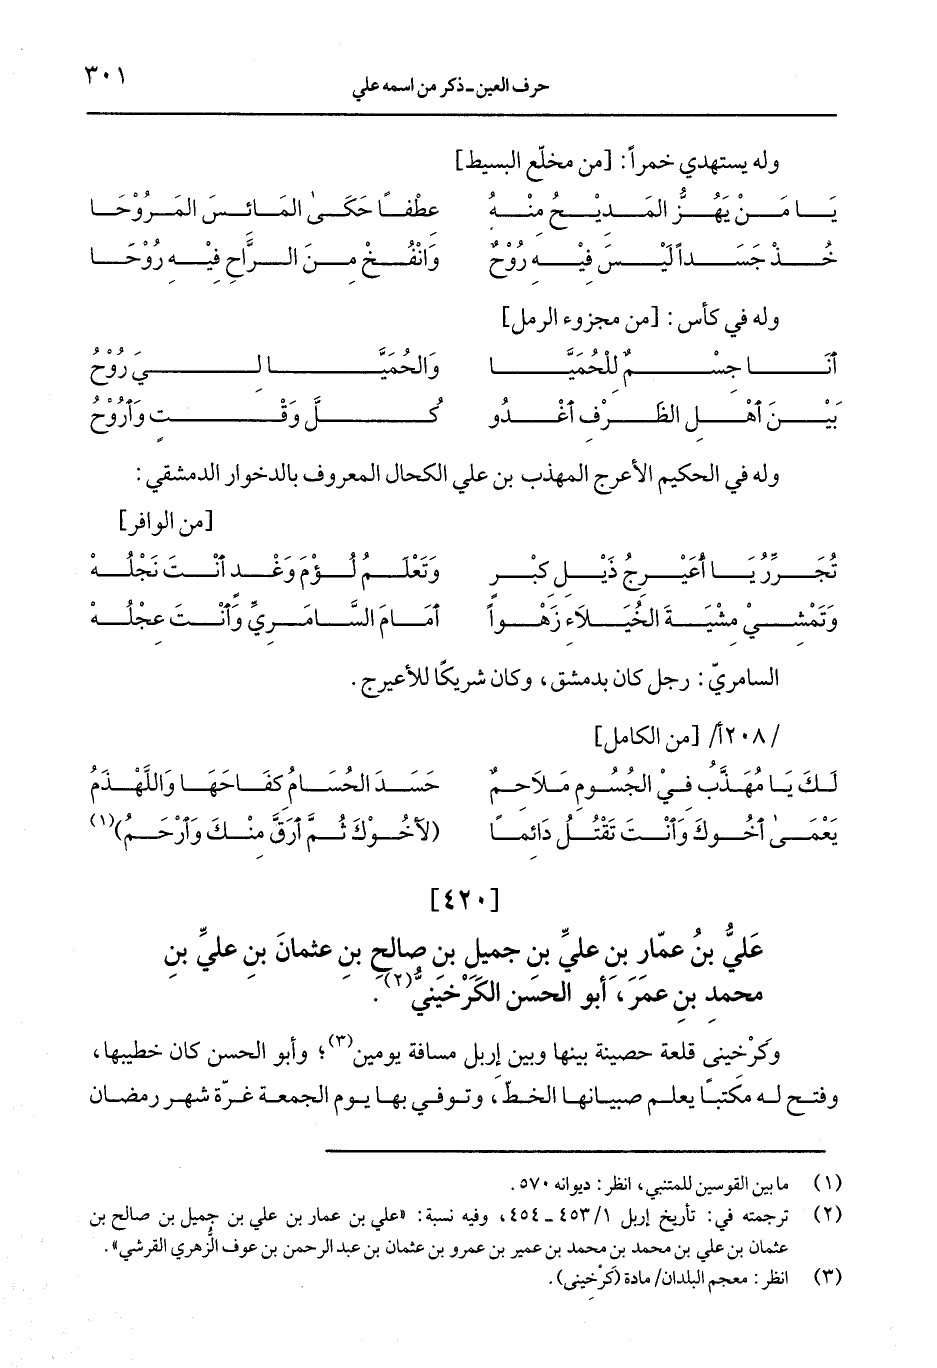 حرف العين ـ ذكر من اسمه علي ٣٠١
وله يستهدي خمراً: [من مخلّع البسيط]
يَا مَنْ يَهُزُّ المَدِيْحُ مِنْهُ عِطْفاً حَكَىٰ المَائِسَ المَرُوْحَا
خُذْ جَسَداً لَيْسَ فِيْهِ رُوْحٌ وَانْفُخْ مِنَ الرَّاحِ فِيْهِ رُوْحَا
وله في كأس: [من مجزوء الرمل]
أَنَا جِسْمٌ لِلْحُمَيَّا وَالحُمَيَّا لِي رُوْحُ
بَيْنَ أَهْلِ الظَرْفِ أَغْدُو كُلَّ وَقْتٍ وَأَرُوْحُ
وله في الحكيم الأعرج المهذب بن علي الكحال المعروف بالدخوار الدمشقي:
[من الوافر]
تُجَرِّرُ يَا أُعَيْرِجُ ذَيْلَ كِبْرٍ وَتَعْلَمُ لُؤْمَ وَغْدٍ أَنْتَ نَجْلُهْ
وَتَمْشِيْ مِشْيَةَ الخُيَلَاءِ زَهْواً أَمَامَ السَّامَرِيِّ وَأَنْتَ عِجْلُهْ
السامريّ: رجل كان بدمشق، وكان شريكًا للأعيرج.
/٢٠٨أ/ [من الكامل]
لَكَ يَا مُهَذَّبُ فِيْ الجُسُومِ مَلَاحِمٌ حَسَدَ الحُسَامُ كِفَاحَهَا وَاللَّهْذَمُ
يَعْمَىٰ أَخُوكَ وَأَنْتَ تَقْتُلُ دَائِماً (لأَخُوْكَ ثُمَّ أَرَقَّ مِنْكَ وَأَرْحَمُ)(١)
[٤٢٠]
عَليُّ بنُ عمّارِ بنِ عليِّ بنِ جميلِ بنِ صالحِ بنِ عثمانَ بنِ عليِّ بنِ
محمدِ بنِ عمَرَ، أبو الحسَنِ الكَرْخِيَنيُّ(٢).
وكَرْخيني قلعة حصينة بينها وبين إربل مسافة يومين(٣)؛ وأبو الحسن كان خطيبها،
وفتح له مكتبًا يعلم صبيانها الخطّ، وتوفي بها يوم الجمعة غرّة شهر رمضان
(١) ما بين القوسين للمتنبي، انظر: ديوانه ٥٧٠.
(٢) ترجمته في: تأريخ إربل ١/ ٤٥٣ ـ ٤٥٤، وفيه نسبة: «علي بن عمار بن علي بن جميل بن صالح بن
عثمان بن علي بن محمد بن محمد بن عمير بن عمرو بن عثمان بن عبد الرحمن بن عوف الزُّهري القرشي».
(٣) انظر: معجم البلدان/ مادة (كَرْخِيني).